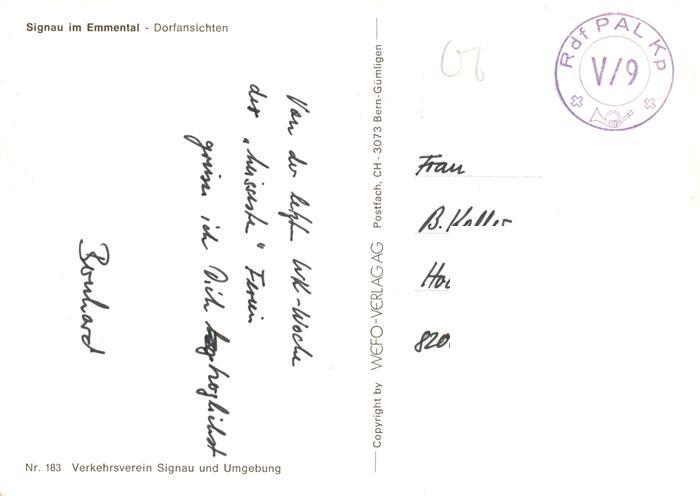 Signau im Emmental - Dorfansichten
Von der letzten WK-Woche
der "heissesten" Ferien
grüsse ich Dich herzlichst
Bernhard
Nr. 183 Verkehrsverein Signau und Umgebung
Copyright by WEFO-VERLAG AG Postfach, CH - 3073 Bern-Gümligen
Rdf PAL Kp
V/9
Frau
B. Keller
Ho
820